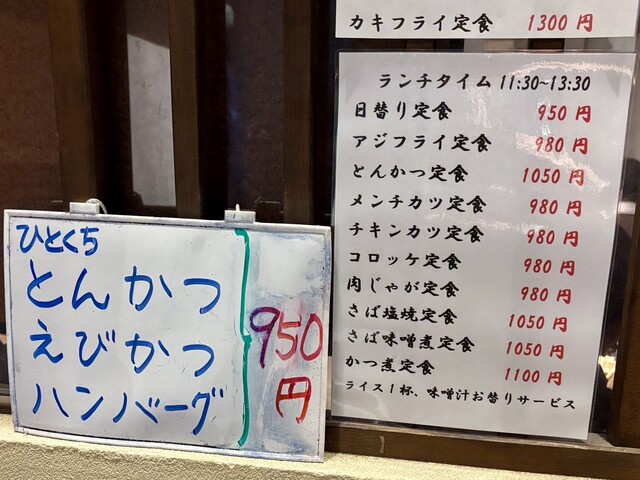 カキフライ定食 1300円
ランチタイム 11:30~13:30
日替り定食 950円
アジフライ定食 980円
とんかつ定食 1050円
メンチカツ定食 980円
チキンカツ定食 980円
コロッケ定食 980円
肉じゃが定食 980円
さば塩焼定食 1050円
さば味噌煮定食 1050円
かつ煮定食 1100円
ライス1杯、味噌汁お替りサービス
ひとくち
とんかつ
えびかつ
ハンバーグ
950
円